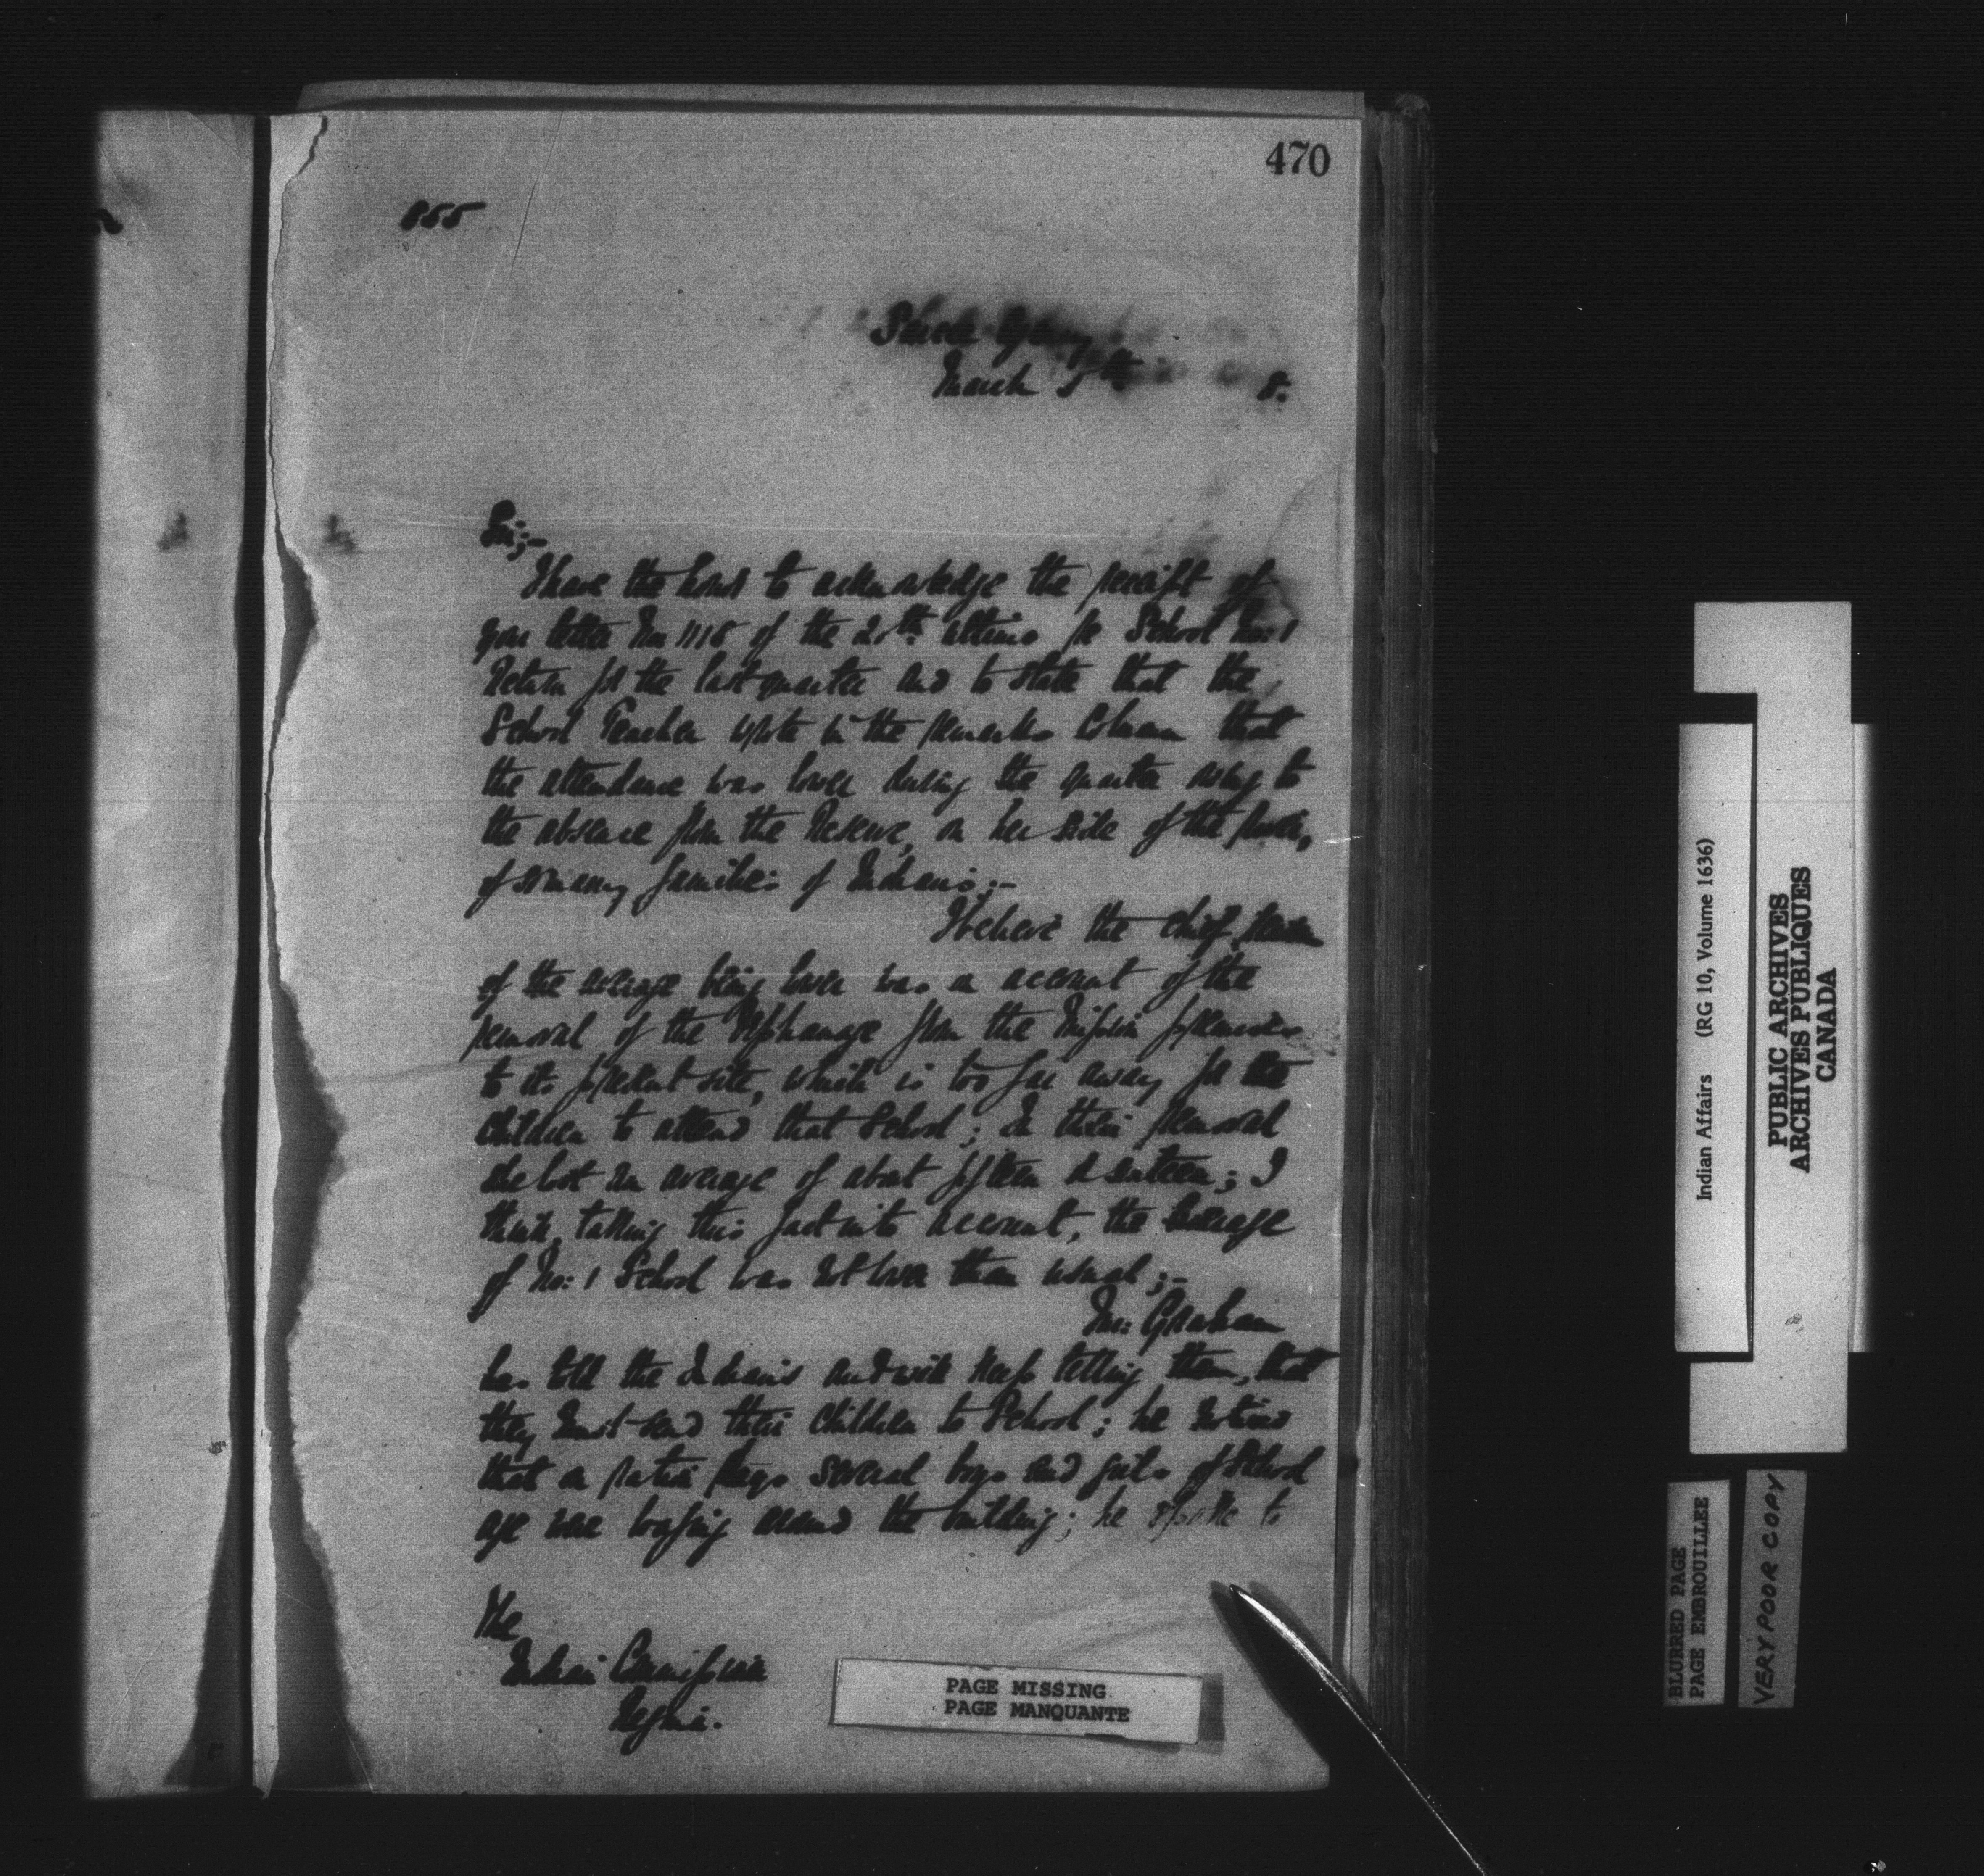 470
855
March 5th 8.
Sir;-
I have the honor to acknowledge the receipt of
your letter No 1118 of the 20th ultimo re School No: 1
Return for the last quarter and to state that the
School Teacher wrote in the remarks Column that
the attendance was lower during the quarter owing to
the absence from the Reserve, on her side of the river,
of so many families of Indians;-
I believe the chief reason
of the average being lower was on account of the
removal of the Orphanage from the Mission premises
to its present site, which is too far away for the
Children to attend that School; In their removal
she lost an average of about fifteen or sixteen; I
think, taking this fact into account, the average
of No: 1 School was not lower than usual;-
Mr: Graham
has told the Indians and will keep telling them, that
they must send their Children to School; he noticed
that on ration days several boys and girls of School
age were loafing around the building; he spoke to
The
Indian Commissioner
Regina.
PAGE MISSING
PAGE MANQUANTE
Indian Affairs (RG 10, Volume 1636)
PUBLIC ARCHIVES
ARCHIVES PUBLIQUES
CANADA
BLURRED PAGE
PAGE EMBROUILLEE
VERY POOR COPY